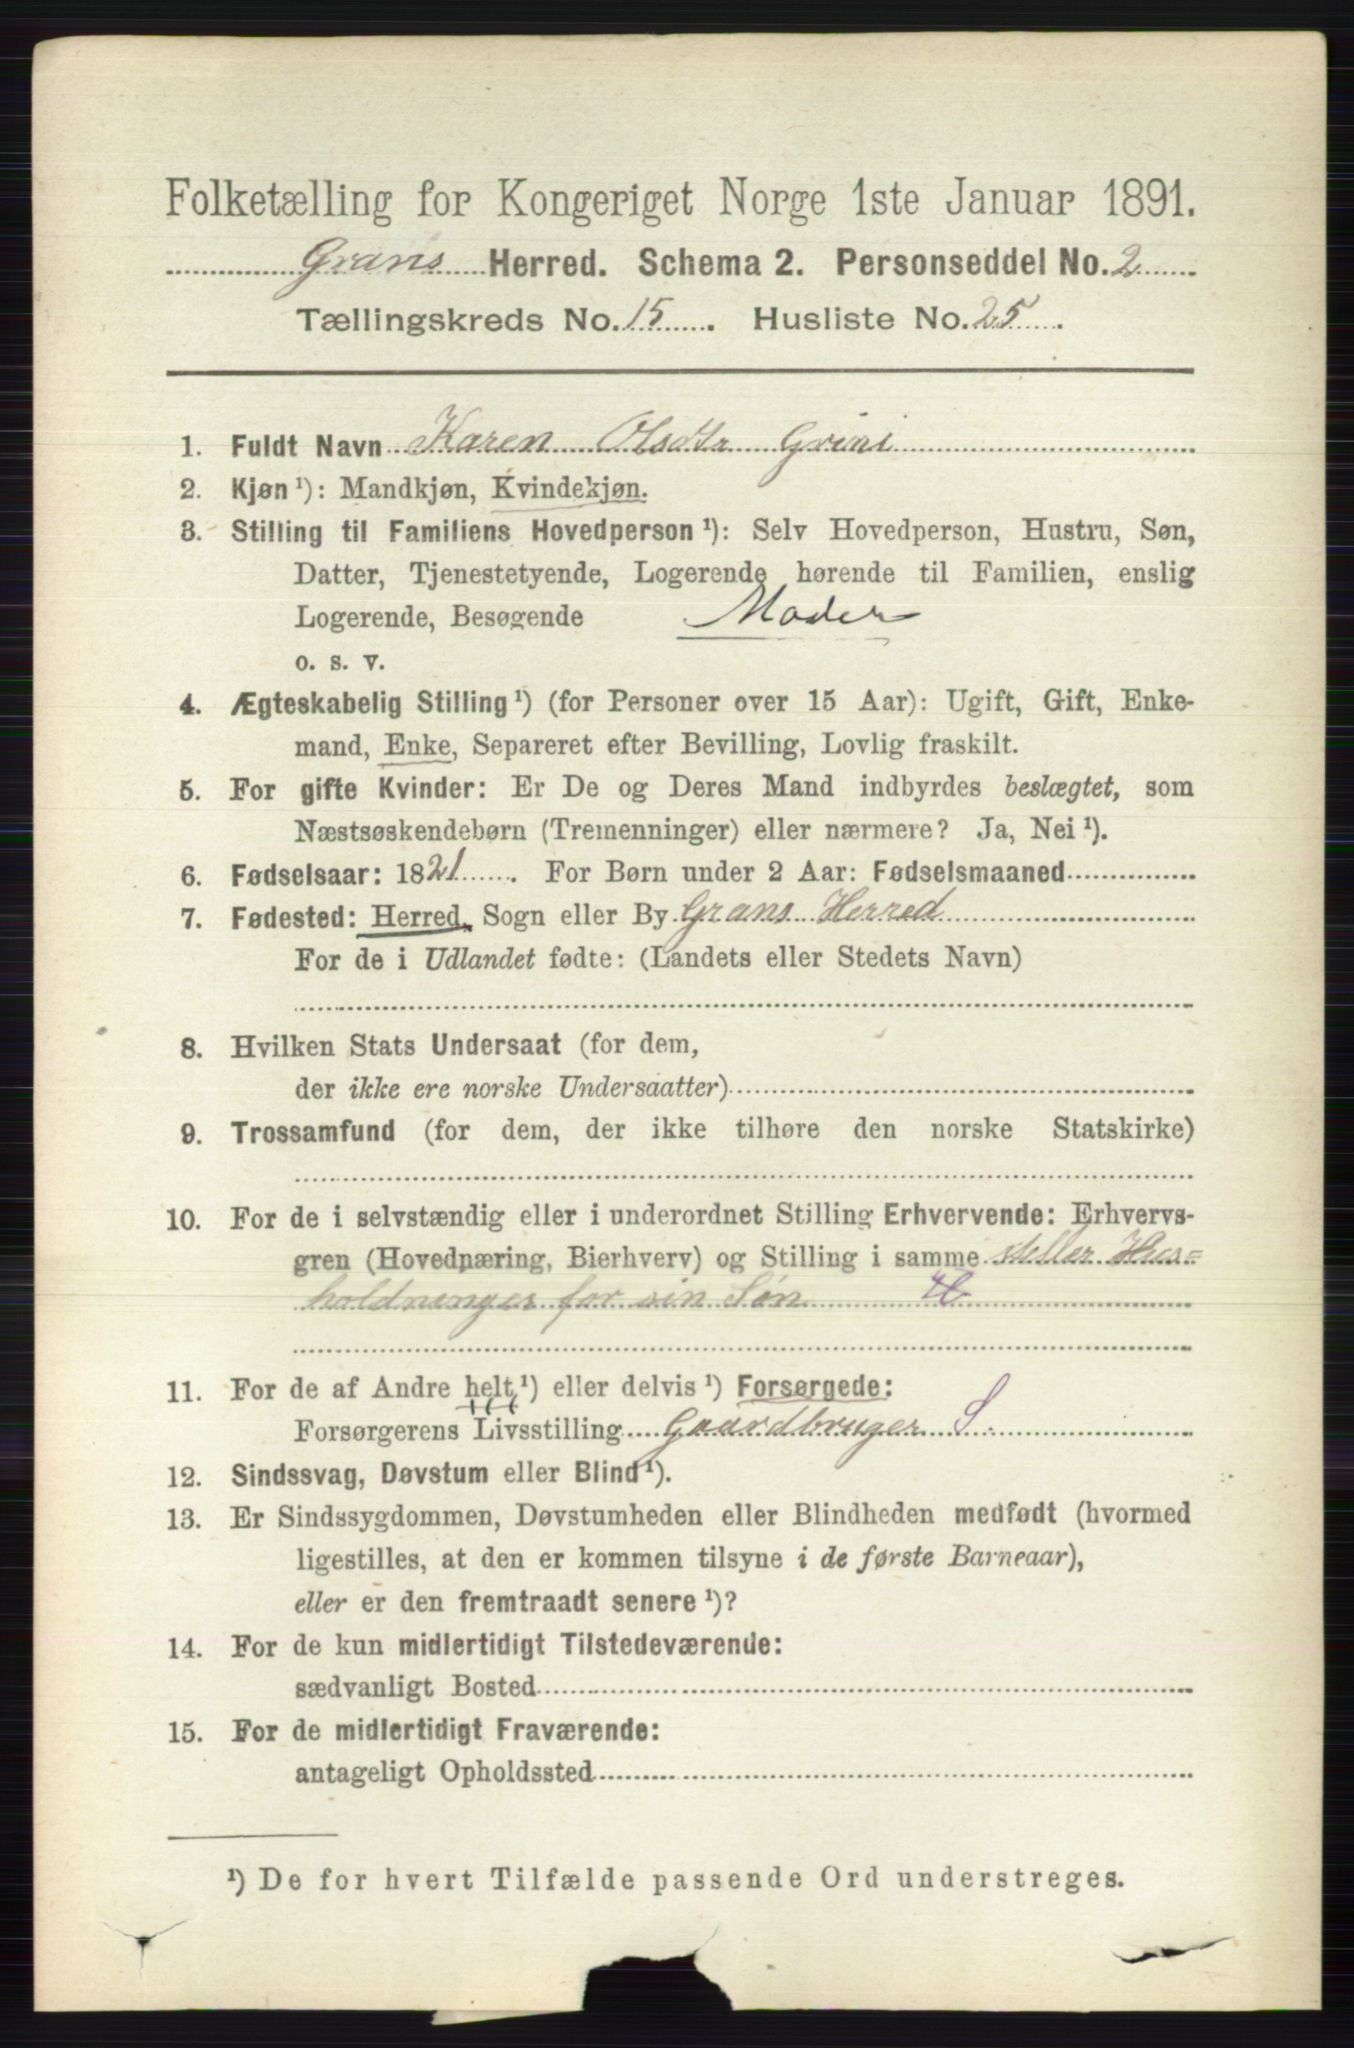 Folketælling for Kongeriget Norge 1ste Januar 1891.
Grans Herred. Schema 2. Personseddel No. 2
Tællingskreds No. 15. Husliste No. 25.
1. Fuldt Navn Karen Olsdtr Grini
2. Kjøn ¹): Mandkjøn, Kvindekjøn.
3. Stilling til Familiens Hovedperson ¹): Selv Hovedperson, Hustru, Søn,
Datter, Tjenestetyende, Logerende hørende til Familien, enslig
Logerende, Besøgende Moder
o. s. v.
4. Ægteskabelig Stilling ¹) (for Personer over 15 Aar): Ugift, Gift, Enke-
mand, Enke, Separeret efter Bevilling, Lovlig fraskilt.
5. For gifte Kvinder: Er De og Deres Mand indbyrdes beslægtet, som
Næstsøskendebørn (Tremenninger) eller nærmere? Ja, Nei ¹).
6. Fødselsaar: 1821. For Børn under 2 Aar: Fødselsmaaned
7. Fødested: Herred, Sogn eller By Grans Herred
For de i Udlandet fødte: (Landets eller Stedets Navn)
8. Hvilken Stats Undersaat (for dem,
der ikke ere norske Undersaatter)
9. Trossamfund (for dem, der ikke tilhøre den norske Statskirke)
10. For de i selvstændig eller i underordnet Stilling Erhvervende: Erhvervs-
gren (Hovednæring, Bierhverv) og Stilling i samme steller Hus=
holdninger for sin Søn H
11. For de af Andre helt ¹) eller delvis ¹) Forsørgede:
Forsørgerens Livsstilling Gaardbruger S.
12. Sindssvag, Døvstum eller Blind ¹).
13. Er Sindssygdommen, Døvstumheden eller Blindheden medfødt (hvormed
ligestilles, at den er kommen tilsyne i de første Barneaar),
eller er den fremtraadt senere ¹)?
14. For de kun midlertidigt Tilstedeværende:
sædvanligt Bosted
15. For de midlertidigt Fraværende:
antageligt Opholdssted
¹) De for hvert Tilfælde passende Ord understreges.